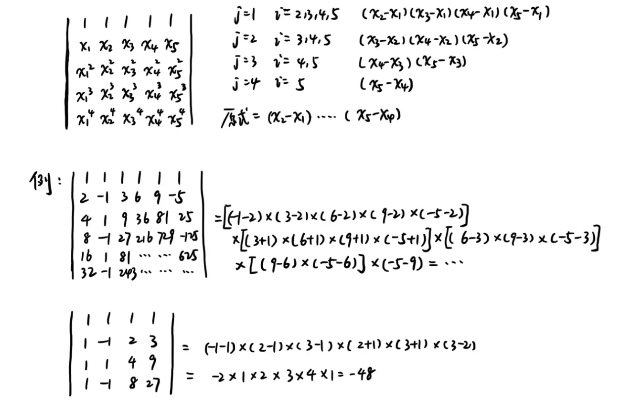 1 1 1 1 1
x₁ x₂ x₃ x₄ x₅
x₁² x₂² x₃² x₄² x₅²
x₁³ x₂³ x₃³ x₄³ x₅³
x₁⁴ x₂⁴ x₃⁴ x₄⁴ x₅⁴
j=1 i=2,3,4,5 (x₂-x₁)(x₃-x₁)(x₄-x₁)(x₅-x₁)
j=2 i=3,4,5 (x₃-x₂)(x₄-x₂)(x₅-x₂)
j=3 i=4,5 (x₄-x₃)(x₅-x₃)
j=4 i=5 (x₅-x₄)
原式=(x₂-x₁)....(x₅-x₄)
例:
1 1 1 1 1 1
2 -1 3 6 9 -5
4 1 9 36 81 25
8 -1 27 216 729 -125
16 1 81 ... ... 625
32 -1 243 ... ... ...
=[(-1-2)×(3-2)×(6-2)×(9-2)×(-5-2)]
×[(3+1)×(6+1)×(9+1)×(-5+1)]×[(6-3)×(9-3)×(-5-3)]
×[(9-6)×(-5-6)]×(-5-9)=...
1 1 1 1
1 -1 2 3
1 1 4 9
1 -1 8 27
=(-1-1)×(2-1)×(3-1)×(2+1)×(3+1)×(3-2)
=-2×1×2×3×4×1=-48